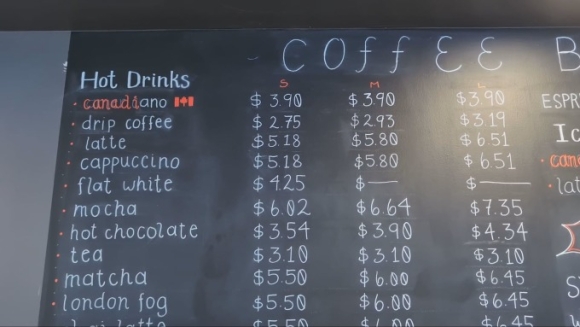 COffEE B
Hot Drinks S M L
canadiano $3.90 $3.90 $3.90
drip coffee $2.75 $2.93 $3.19
latte $5.18 $5.80 $6.51
cappuccino $5.18 $5.80 $6.51
flat white $4.25 $— $—
mocha $6.02 $6.64 $7.35
hot chocolate $3.54 $3.90 $4.34
tea $3.10 $3.10 $3.10
matcha $5.50 $6.00 $6.45
london fog $5.50 $6.00 $6.45
latte $5.50 $6.00 $6.45
ESPR
Ic
can
lat
S